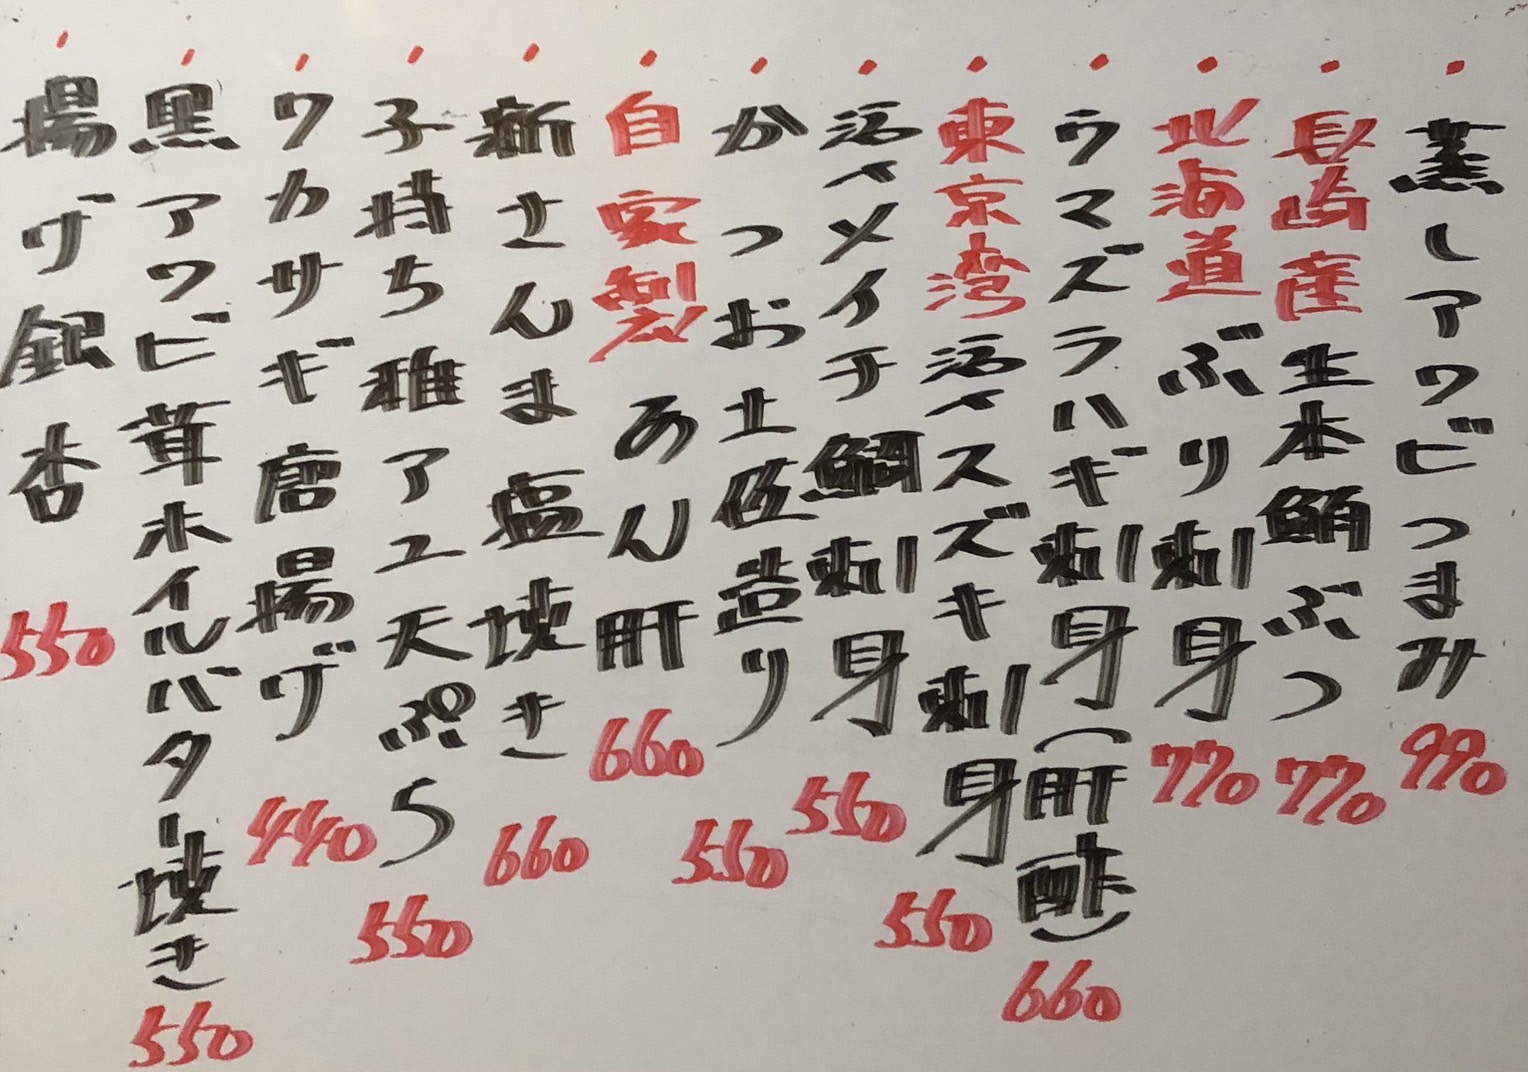 ・蒸しアワビつまみ 990
・長崎産生本鮪ぶつ 770
・北海道ぶり刺身 770
・ウマズラハギ刺身(肝酢) 660
・東京湾活〆スズキ刺身 550
・活〆メイチ鯛刺身 550
・かつお土佐造り 550
・自家製あん肝 660
・新さんま塩焼き 660
・子持ち稚アユ天ぷら 550
・ワカサギ唐揚げ 440
・黒アワビ茸ホイルバター焼き 550
・揚げ銀杏 550